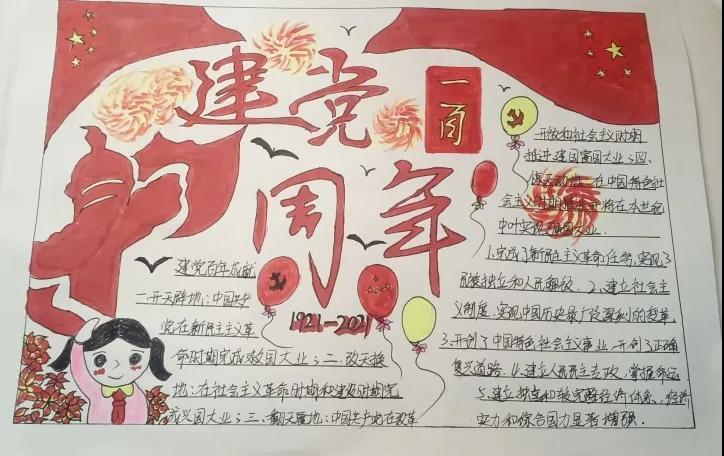 建党
一百
周年
1921-2021
建党百年成就
一:开天辟地:中国共产
党在新民主主义革
命时期完成救国大业;二、改天换
地:在社会主义革命时期和建设时期完
成兴国大业;三、翻天覆地:中国共产党在改革
开放和社会主义时期
推进建国富国大业;四、
在中国特色社
会主义 将在本世纪
中叶实现 大业.
1.完成了新民主主义革命任务,实现了
民族独立和人民解放. 2、建立社会主
义制度,实现中国历史最广泛深刻的变革
3.开创了中国特色社会主义事业,开创了正确
复兴道路.4.建立人民民主专政,掌握命运
5.建立独立和较完整经济体系,经济
实力和综合国力显著增强.